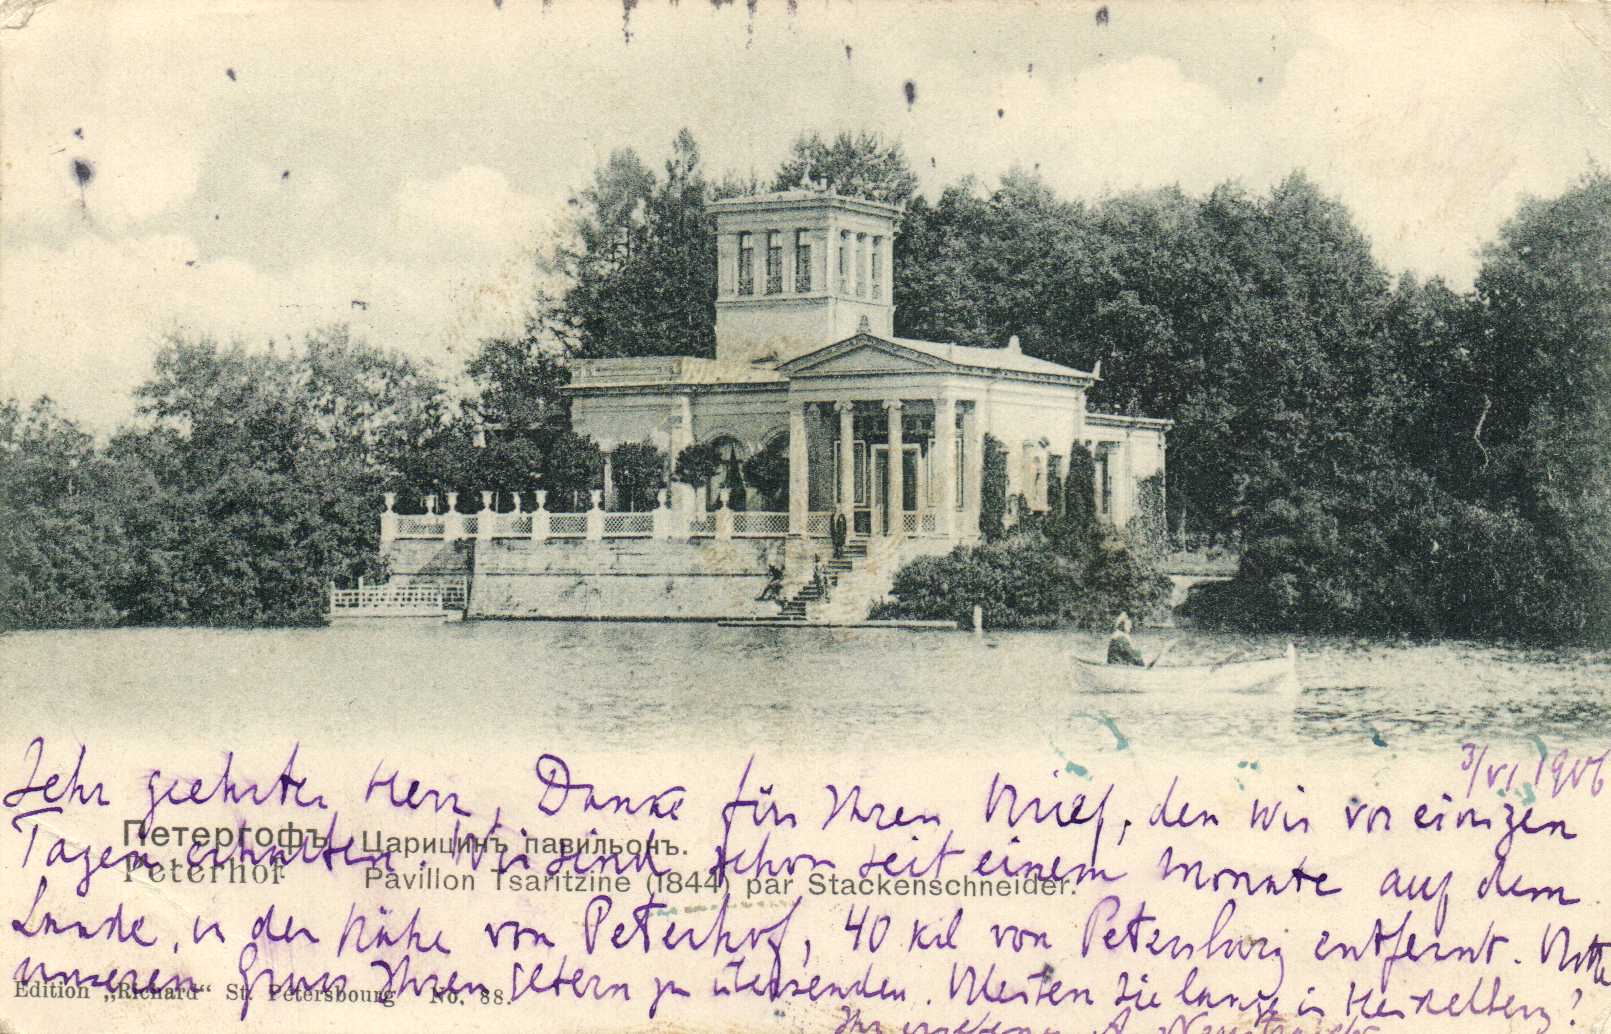 3/VI 1906
Sehr geehrter Herr, Danke für Ihren Brief, den wir vor einigen
Петергофъ. Царицинъ павильонъ.
Tagen erhalten. Wir sind schon seit einem Monate auf dem
Peterhof Pavillon Tsaritzine (1844) par Stackenschneider.
Lande, in der Nähe von Peterhof, 40 kil von Petersburg entfernt. Bitte
unseren Gruss Ihren Eltern zu übersenden. Sie lange in Heidelberg?
Edition „Richard“ St. Petersbourg No. 88.
Ihr A.